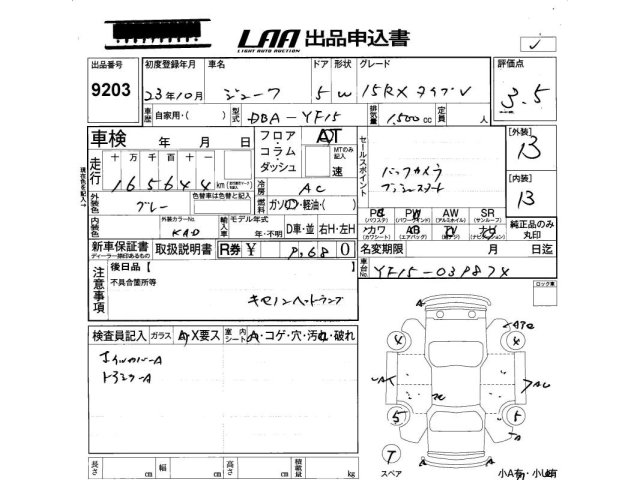 LAA 出品申込書
LIGHT AUTO AUCTION
出品番号 初度登録年月 車名 ドア 形状 グレード 評価点
9203 23年10月 ジューク 5 W 15RX タイプV 3.5
車歴 自家用・( ) 型式 DBA-YF15 排気量 1,500 cc 定員 人
車検 年 月 日 フロア・コラム・ダッシュ AT MTのみ記入 速
セールスポイント バックカメラ
プッシュスタート
[外装] 13
[内装] 13
走行 十 万 千 百 十
165644 km
現在色を記入 冷房 AC
外装色 グレー 色替車は色替と記入 燃料 ガソリン・軽油・( )
内装色 外装カラーNo. KAD 輸入車 モデル年式 年・不明 D車・並 右H・左H
PS PW AW SR
(パワステ) (パワーウィンド) (アルミホイル) (サンルーフ)
カワ AB TV ナビ
(カワシート) (エアバッグ)
純正品のみ丸印
新車保証書 取扱説明書 R券 ¥ 9,680
ディーラー捺印あるもの
名変期限 月 日迄
車台No. YF15-039874
注意事項 後日品【
不具合箇所等
キセノンヘットランプ
ロック車
検査員記入 ガラス A X要ス 室内シート A・コゲ・穴・汚れ・破れ
ホイルカバーA
ドアミラーA
A A
4 4
A AU
5 5
A
T
スペア
A A
長さ cm 幅 cm 高さ cm 積載量 kg
小A有・小U有